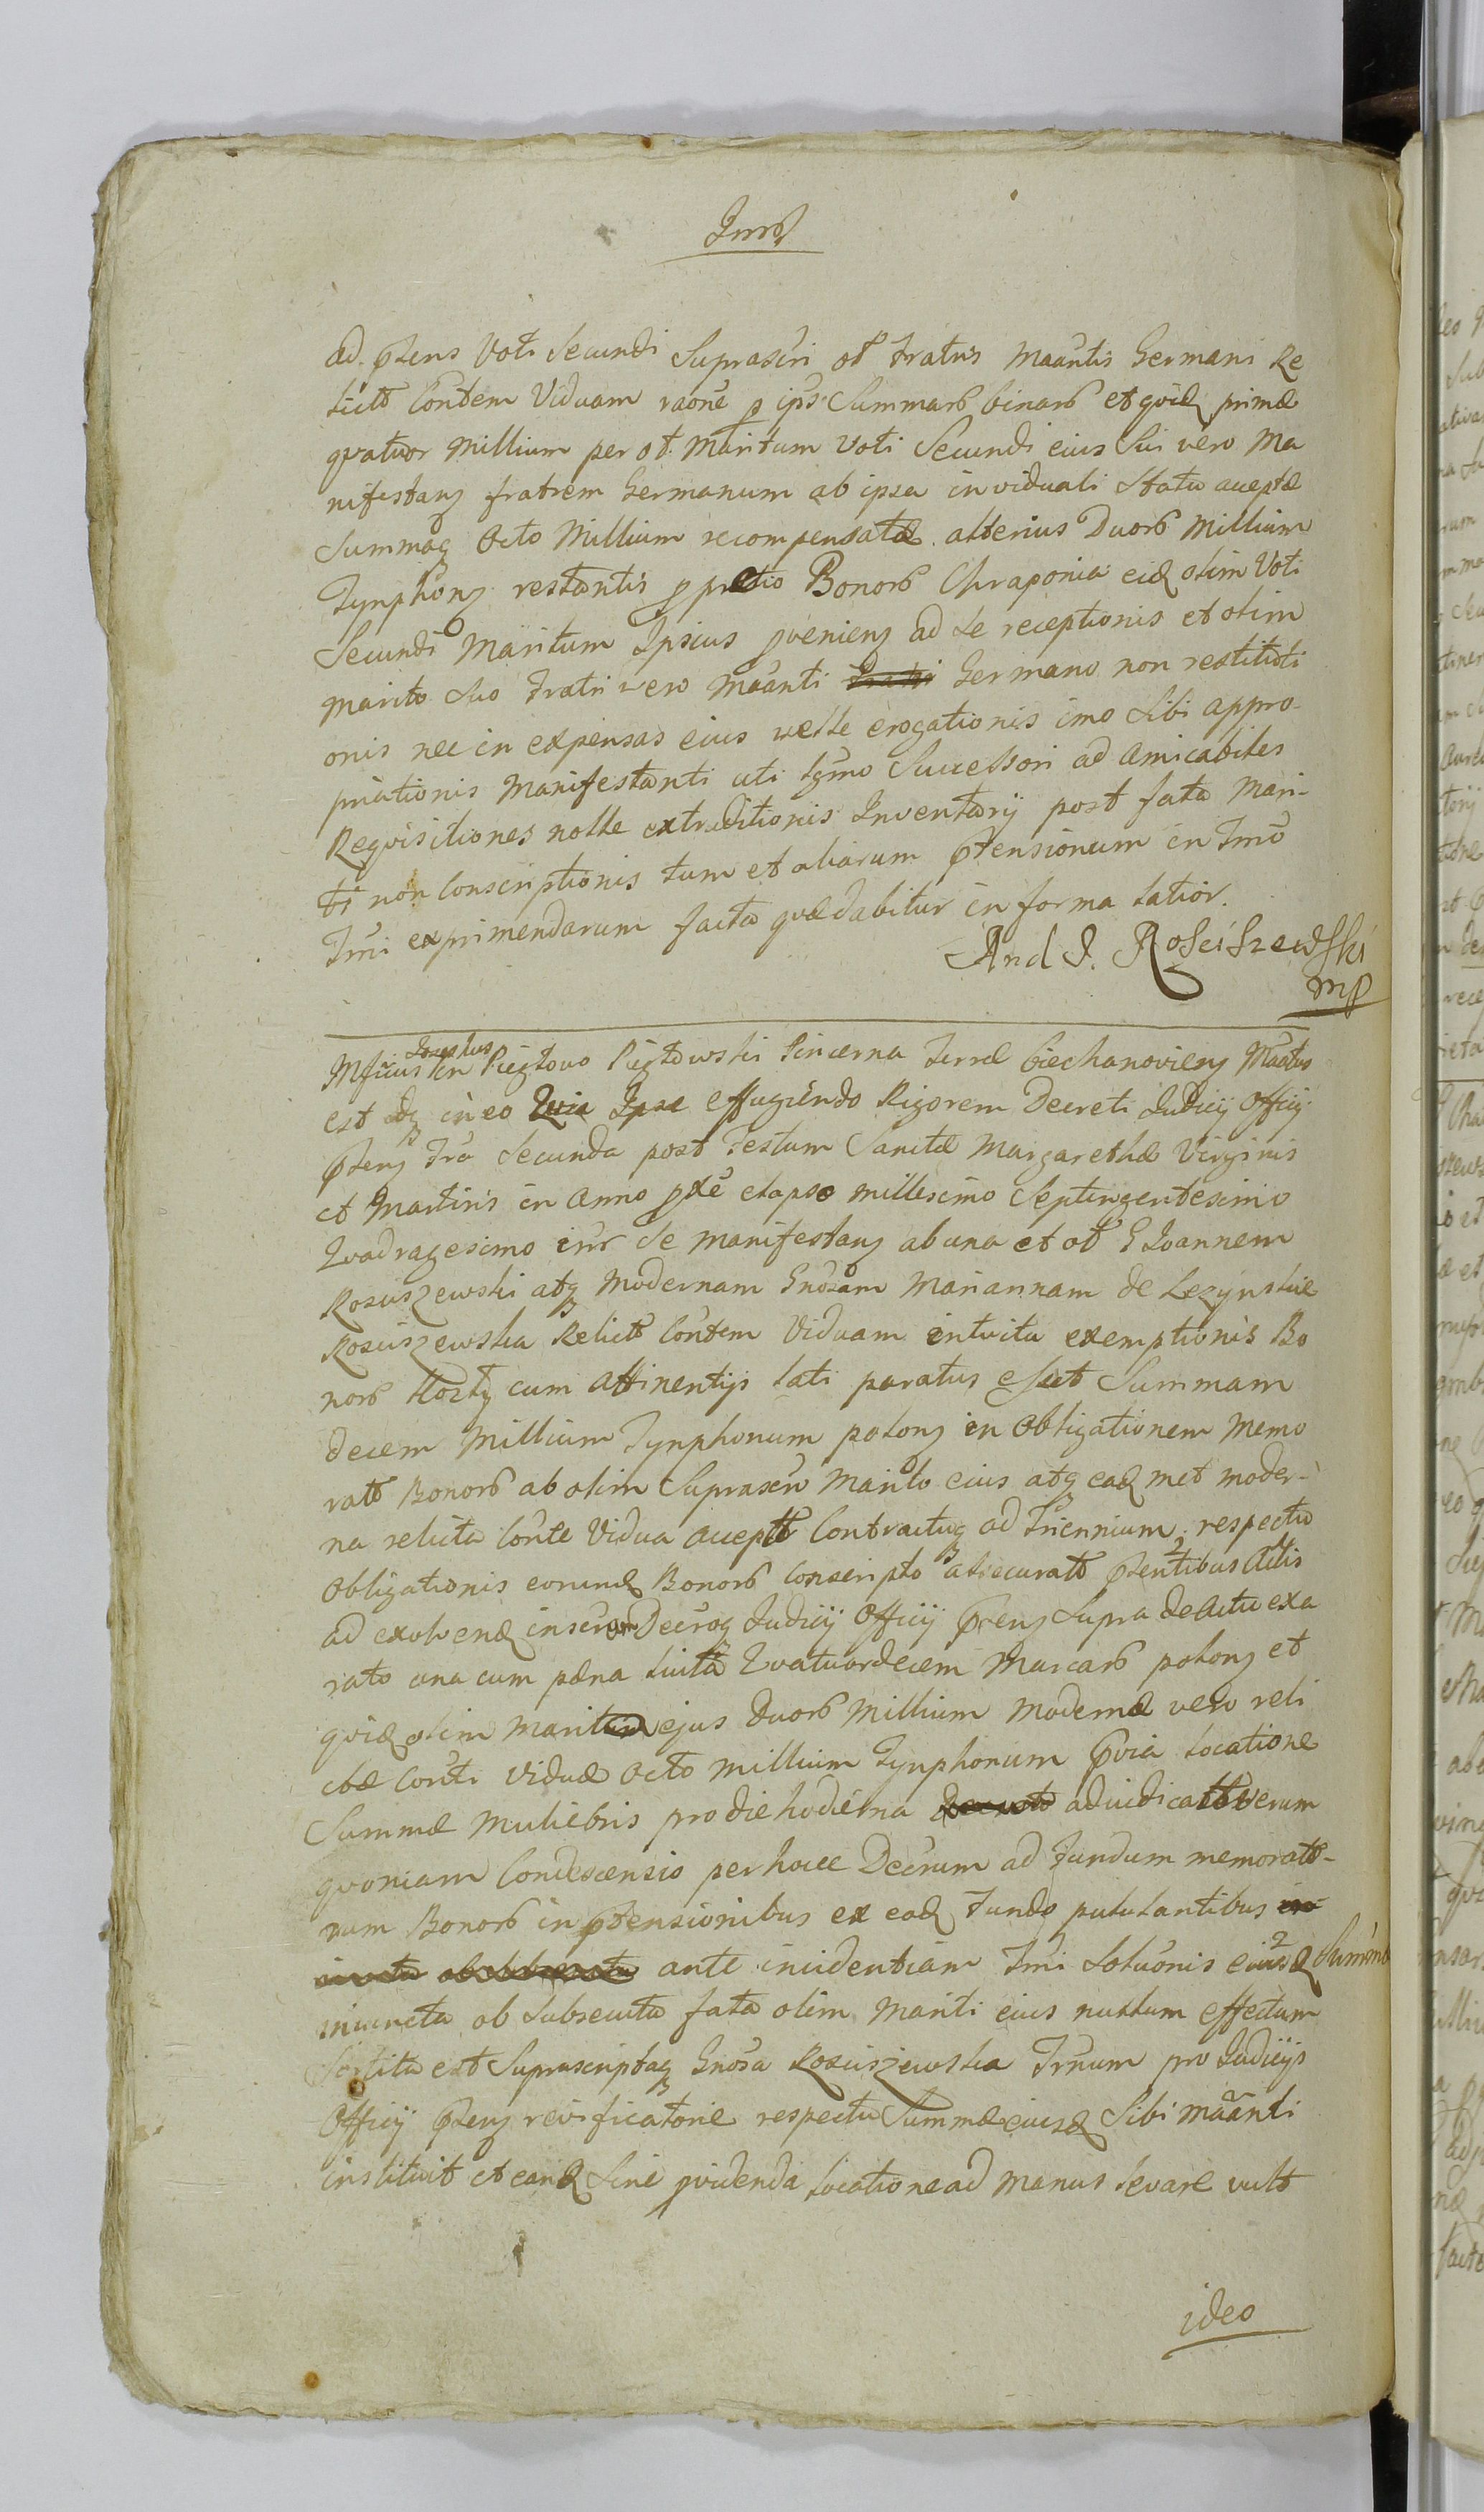 ad. pñens Voti Secundi Suprascri ol Fratris Maãntis Germani Re
lictã Constem Viduam raõne p ips Summarũ binarũ et quidẽ primæ
quatuor Millium per ol. Maritum Voti Secundi eius Sui vero Ma
nifestans fratrem Germanum ab ipsa in viduali Statu acceptæ
Summaq Octo Millium recompensatæ alterius Duorũ Millium
Tynphonũ restantis p pretio Bonorũ Chraponia eidẽ olim Voti
Secundi Maritum Ipsius proveniens ad Se receptionis et olim
marito Suo Fratri vero Maãnti Germano non restituti
onis nec in expensas eius velle erogationis imo Sibi appro-
priationis Manifestanti uti lgmo Successori ad Amicabiles
Requisitiones nolle extraditionis Inventarij post fata Mari-
ti non Conscriptionis tum et aliarum ptensionum in Tmõ
Tmi exprimendarum facta quæ dabitur in forma latior.
And J. Rosciszewski
mp
Mficus in Pięstowo Pięstowski Pincerna Terræ Ciechanoviens Maãtus
est Idq in eo Quia Ipse effugiendo Rigorem Decreti Judicij Officij
pñens Fria Secunda post Festum Sanctæ Margarethæ Virginis
et Martiris in Anno pxe elapso millesimo Septingentesimo
Quadragesimo inr Se Manifestans ab una et ol G Joannem
Rosciszewski atq Modernam Gnosam Mariannam de Lezynskie
Rosciszewska Relictã Constem Viduam intuitu exemptionis Bo
norũ cum Attinentijs lati paratus esset Summam
decem Millium Tynphonum polons in Obligationem Memo
ratõ Bonorũ ab olim Suprascri Marito eius atq eadẽ met moder-
na relicta Conste Vidua acceptã Contractuq ad Triennium respectu
Obligationis eorundẽ Bonorũ conscripto assecuratõ pñentibus Actis
ad exolvendẽ Decroq Judicij Officij pñens Supra de Actu exa
rato una cum pæna luita Quatuordecem Marcarũ polons et
quidẽ olim Marito ejus Duorũ Millium Modernæ vero reli
ctæ Consti Viduæ Octo Millium Tynphonum pvia Locatione
Summæ Muliebris pro die hodierna adiudicatã Verum
quoniam Condescensio per hocce Decrum ad Fundum memorato-
rum Bonorũ in ptensionibus ex eodẽ Fundo pululantibus
ante incidentiam Tmi Solutionis eiusdẽ Summæ
iniuncta ob Subsecuta fata olim Mariti eius nullum effectum
Sortita est Suprascriptaq Gnosa Rosciszewska Trnum pro Judicijs
Officij pñens reificatorie respectu Summæ eiusdẽ Sibi Maãnti
instituit et eandẽ Sine pvidenda Locatione ad Manus levare vult
ideo